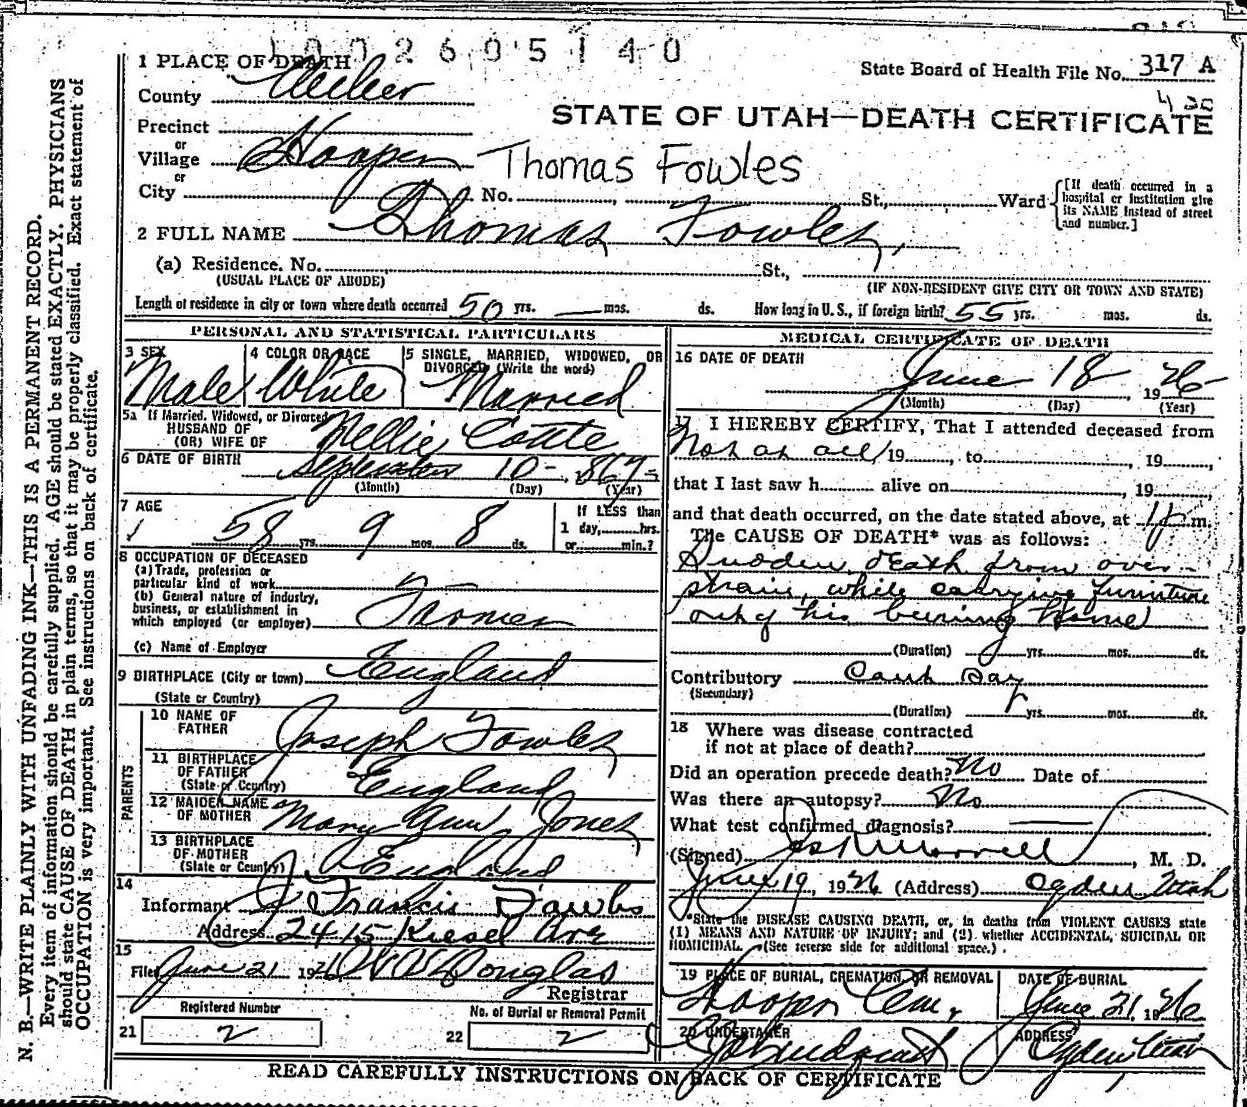 1002605140
1 PLACE OF DEATH
State Board of Health File No. 317 A
County Weber
STATE OF UTAH—DEATH CERTIFICATE
Precinct
or
Village Hooper
Thomas Fowles
or
City No. St., Ward [If death occurred in a hospital or institution give its NAME instead of street and number.]
2 FULL NAME Thomas Fowles,
(a) Residence. No. St.,
(USUAL PLACE OF ABODE) (IF NON-RESIDENT GIVE CITY OR TOWN AND STATE)
Length of residence in city or town where death occurred 50 yrs. — mos. ds. How long in U. S., if foreign birth? 55 yrs. mos. ds.
PERSONAL AND STATISTICAL PARTICULARS
3 SEX 4 COLOR OR RACE 5 SINGLE, MARRIED, WIDOWED, OR DIVORCED (Write the word)
Male White Married
5a If Married, Widowed, or Divorced
HUSBAND OF
(OR) WIFE OF Nellie
6 DATE OF BIRTH September 10 - 867
(Month) (Day) (Year)
7 AGE
58 yrs. 9 mos. 8 ds.
If LESS than
1 day, hrs.
or min.?
8 OCCUPATION OF DECEASED
(a) Trade, profession or
particular kind of work
(b) General nature of industry,
business, or establishment in
which employed (or employer) Farmer
(c) Name of Employer
9 BIRTHPLACE (City or town) England
(State or Country)
PARENTS
10 NAME OF
FATHER Joseph Fowles
11 BIRTHPLACE
OF FATHER
(State or Country) England
12 MAIDEN NAME
OF MOTHER Mary Ann Jones
13 BIRTHPLACE
OF MOTHER
(State or Country) England
14
Informant J Francis Fowles
Address 2415 Kiesel Ave
15
Filed June 21 1926 Douglas
Registrar
Registered Number No. of Burial or Removal Permit
21 2 22 2
MEDICAL CERTIFICATE OF DEATH
16 DATE OF DEATH
June 18 1926
(Month) (Day) (Year)
17 I HEREBY CERTIFY, That I attended deceased from
Not at all, 19, to, 19,
that I last saw h alive on, 19
and that death occurred, on the date stated above, at m.
The CAUSE OF DEATH* was as follows:
Sudden death from over-
strain, while carrying furniture
out of his burning Home
(Duration) yrs. mos. ds.
Contributory
(Secondary)
(Duration) yrs. mos. ds.
18 Where was disease contracted
if not at place of death?
Did an operation precede death? No Date of
Was there an autopsy? No
What test confirmed diagnosis? —
(Signed) Morrell, M. D.
June 19, 1926 (Address) Ogden Utah
*State the DISEASE CAUSING DEATH, or, in deaths from VIOLENT CAUSES state
(1) MEANS AND NATURE OF INJURY; and (2) whether ACCIDENTAL, SUICIDAL OR
HOMICIDAL. (See reverse side for additional space.)
19 PLACE OF BURIAL, CREMATION, OR REMOVAL DATE OF BURIAL
Hooper Cem. June 21, 1926
20 UNDERTAKER ADDRESS
Ogden, Utah
READ CAREFULLY INSTRUCTIONS ON BACK OF CERTIFICATE
N. B.—WRITE PLAINLY WITH UNFADING INK—THIS IS A PERMANENT RECORD.
Every item of information should be carefully supplied. AGE should be stated EXACTLY. PHYSICIANS
should state CAUSE OF DEATH in plain terms, so that it may be properly classified. Exact statement of
OCCUPATION is very important. See instructions on back of certificate.